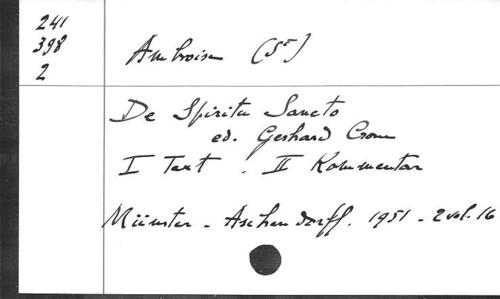 241
398
2
Ambroise (St)
De Spiritu Sancto
ed. Gerhard Crone
I Text . II Kommentar
Münster - Aschendorff. 1951 - 2 vol. 16